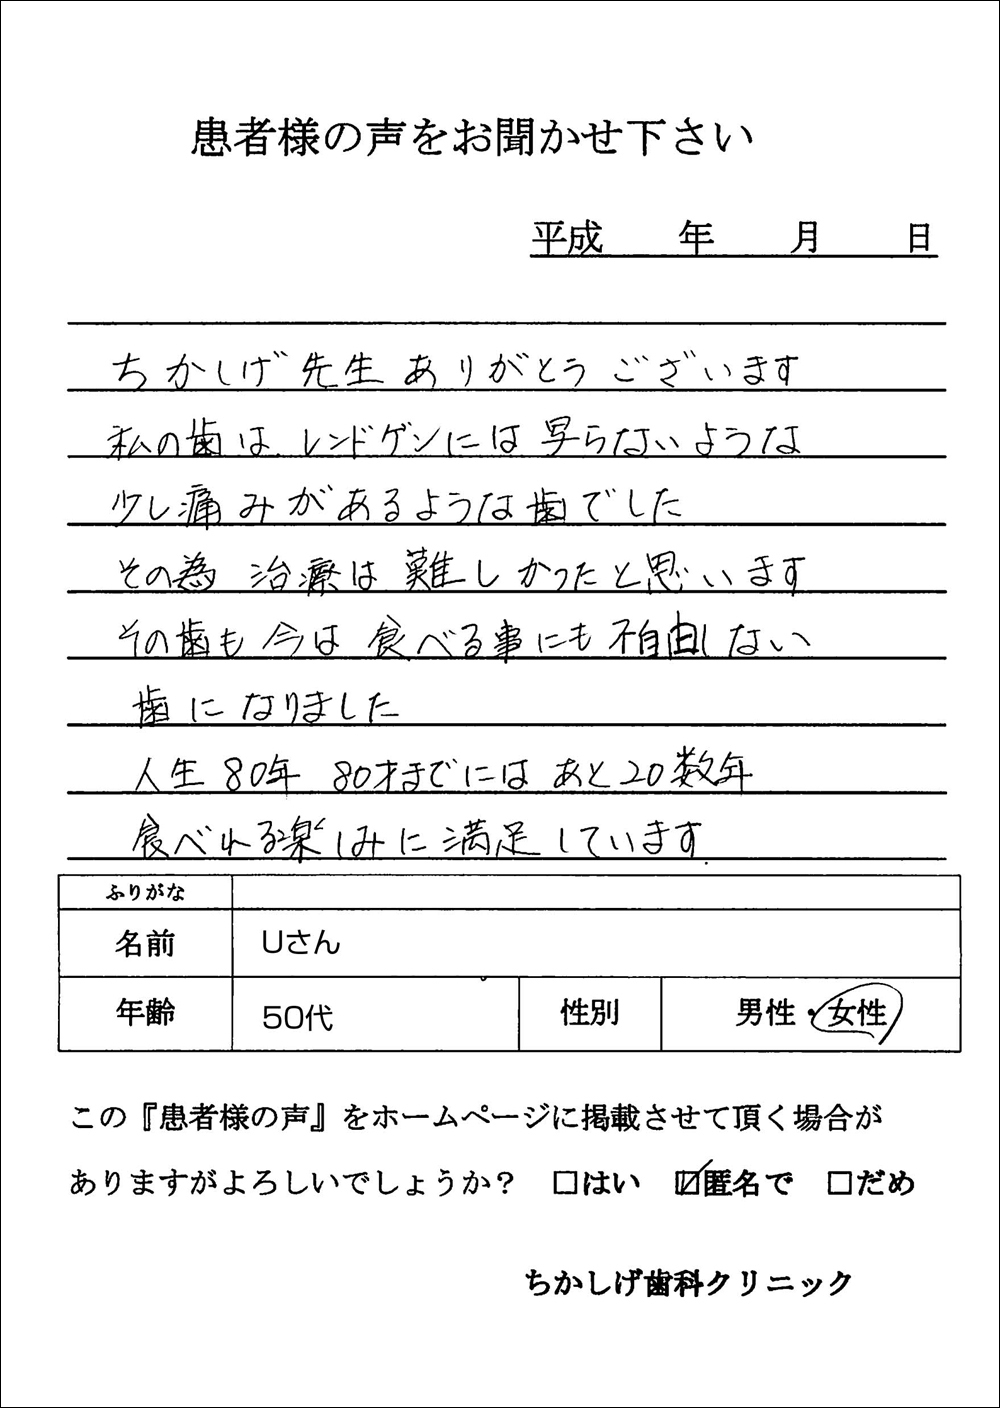 患者様の声をお聞かせ下さい
平成　　年　　月　　日
ちかしげ先生 ありがとうございます
私の歯は レンドゲンには 写らないような
少し痛みがあるような歯でした
その為 治療は 難しかったと思います
その歯も 今は 食べる事にも 不自由しない
歯に なりました
人生80年 80才までには あと20数年
食べれる楽しみに 満足しています
ふりがな
名前 Uさん
年齢 50代 性別 男性・女性
この『患者様の声』をホームページに掲載させて頂く場合が
ありますがよろしいでしょうか？ □はい ☑匿名で □だめ
ちかしげ歯科クリニック